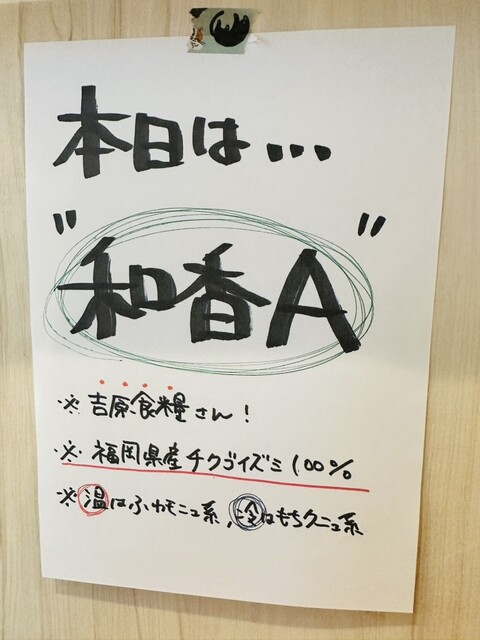 本日は...
"和香A"
※吉原食糧さん!
※福岡県産チクゴイズミ100%
※温はふわモニュ系,冷はもちクニュ系